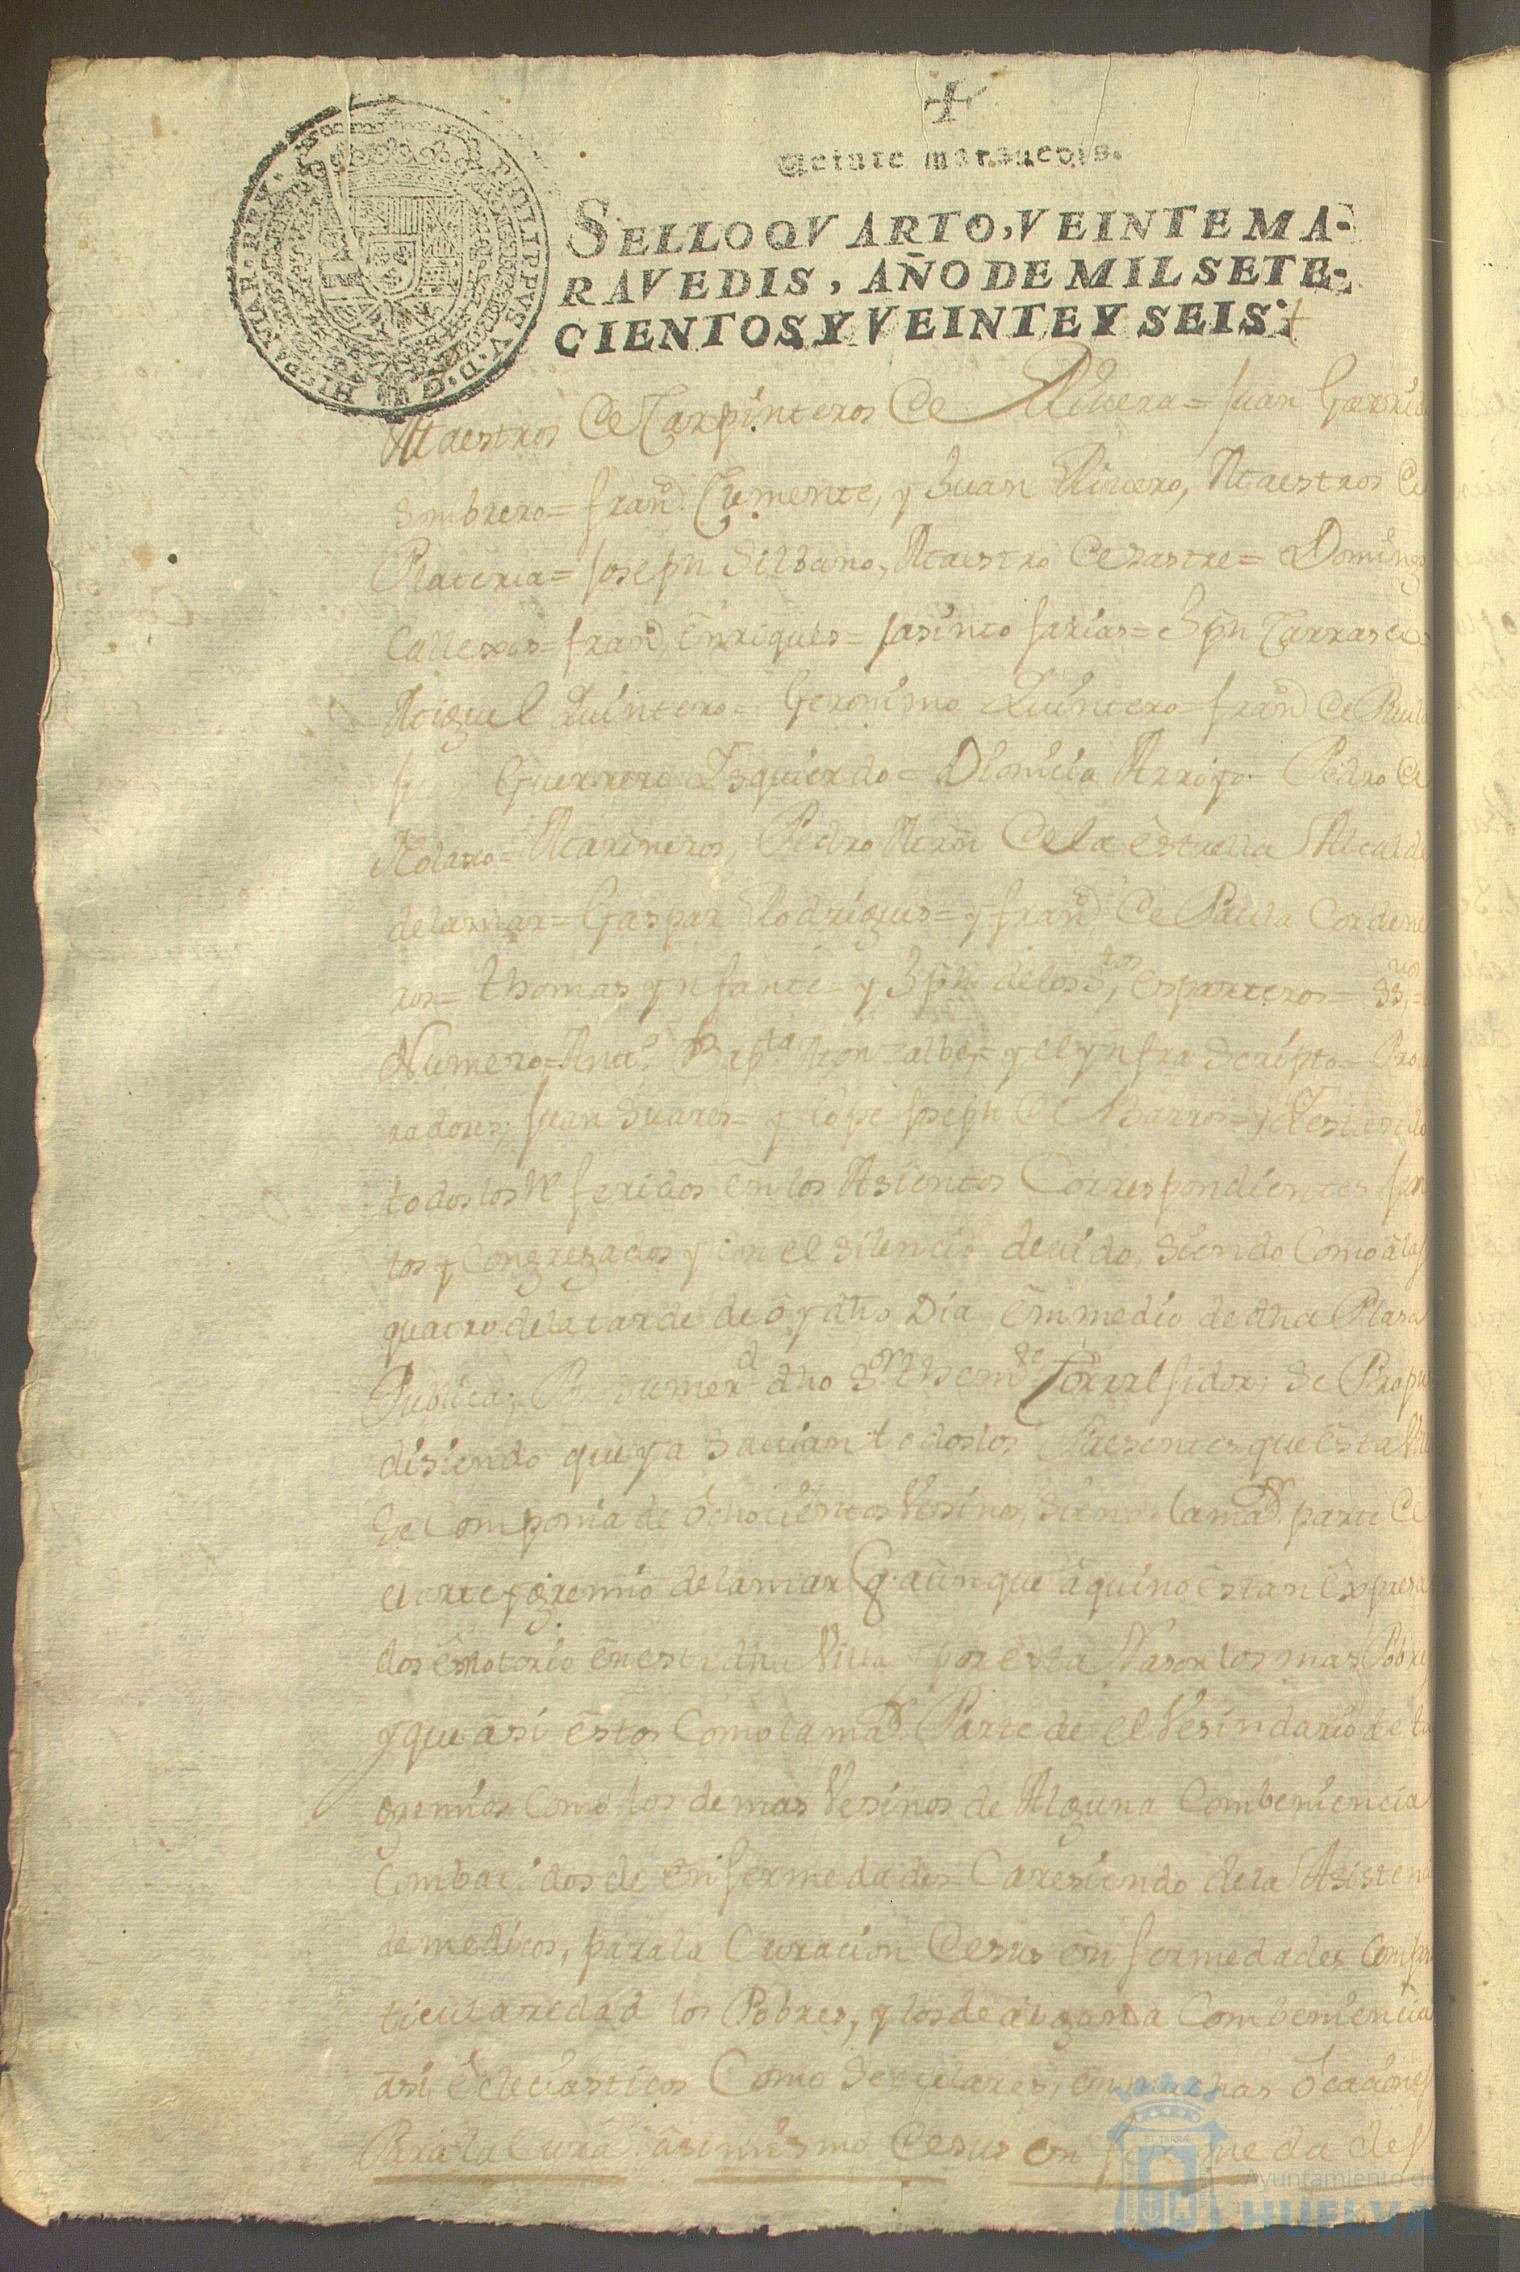 Veinte marauedis.
SELLO QVARTO, VEINTE MA-
RAVEDIS, AÑO DE MIL SETE-
CIENTOS Y VEINTE Y SEIS.
PHILIPPVS V. D. G. HISPANIAR. REX.
Maestros de Carpinteros de Riuera = Juan Garrido
sombrero = fran.co Clemente, y Juan Riuero, Maestros de
Plateria = Joseph Silbano, Maestro de sastre = Domingo
Callexas = fran.co enriques = Jasinto farias = Jph Carrasco
Miguel Quintero = Geronimo Quintero = fran.co de Paula
Guerrero Isquierdo = Dionicia Arroyo = Pedro de
Marineros, Pedro Mrñ de la estrella Alcalde
de la mar = Gaspar Rodrigues = y fran.co de Paula Cordene
ros = thomas ynfante = y Jph. de los s.tos, esparteros =
Numero = Ant.o Bap.ta Monzalbe, = y el ynfra scripto = Pro
radores, Juan Suares = y lope Joseph de Barros =
todos los Referidos en los Asientos Correspondientes Jun
tos y Congregados y con el silencio deuido, siendo Como a las
quatro de la tarde de oy dho Dia en medio de dha Plasa
Publica; Su mer.d dho S.or then.te Correxidor; se
disiendo que ya sauian todos los Presentes que esta Villa
se Componia de ochocientos Vesinos, siendo la ma.r parte de
el arte y gremio de la mar q. aunque aqui no estan expresa
dos es notorio en esta dha Villa y por esta Rason los mas Pobres
y que asi estos Como la ma.r Parte de el Vesindario de
gremios Como los demas Vesinos de Alguna Combeniencia
Combatidos de enfermedades Caresiendo de la Asistencia
de medicos, para la Curacion de sus enfermedades Con par
ticularedad los Pobres, y los de alguna Combeniencia
asi eclesiasticos Como seculares, en muchas ocaciones
Para la Cura asimismo de sus enfermedades
Ayuntamiento de
HUELVA